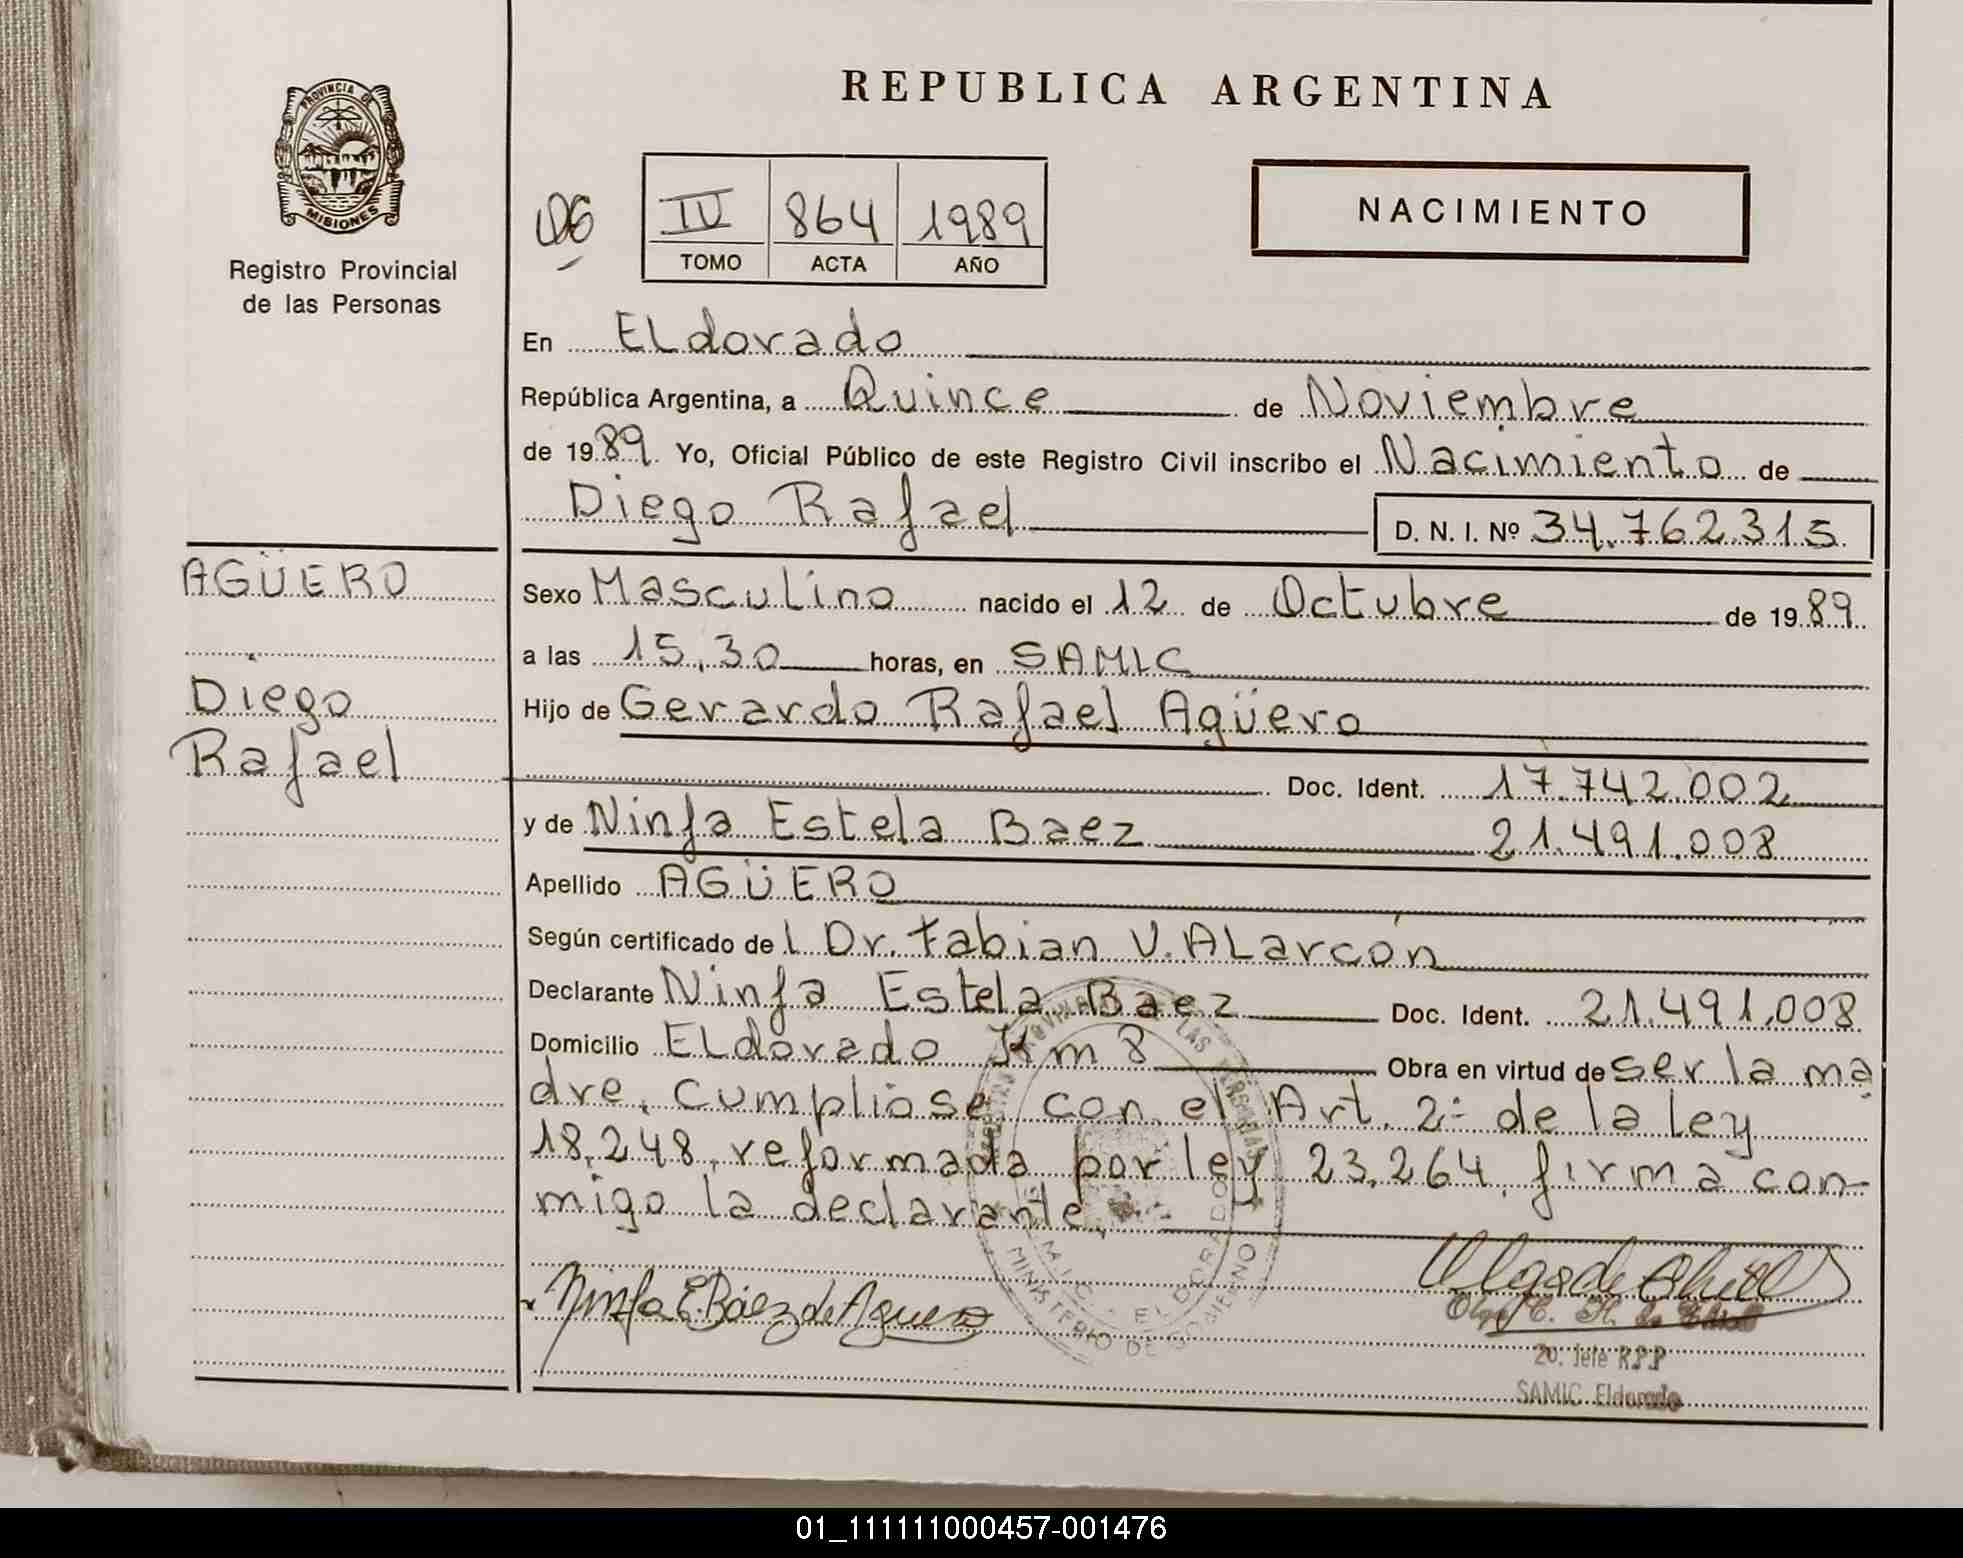 REPUBLICA ARGENTINA
PROVINCIA DE
MISIONES
Registro Provincial
de las Personas
IV 864 1989
TOMO ACTA AÑO
NACIMIENTO
En ELdorado
República Argentina, a Quince de Noviembre
de 1989 Yo, Oficial Público de este Registro Civil inscribo el Nacimiento de
Diego Rafael D. N. I. Nº 34.762.315
AGÜERO
Diego
Rafael
Sexo Masculino nacido el 12 de Octubre de 1989
a las 15,30 horas, en SAMIC
Hijo de Gerardo Rafael Agüero
Doc. Ident. 17.742.002
y de Ninfa Estela Baez 21.491.008
Apellido AGÜERO
Según certificado del Dr. Fabian V. ALarcón
Declarante Ninfa Estela Baez Doc. Ident. 21.491.008
Domicilio ELdorado Km 8 Obra en virtud de ser la ma
dre, cumpliose con el Art. 2º de la ley
18,248, reformada por ley 23,264, firma con-
migo la declarante.
Ninfa E. Báez de Aguero
MINISTERIO DE GOBIERNO
ELDORADO
2o. Jefe R.P.P
SAMIC. Eldorado
01_111111000457-001476